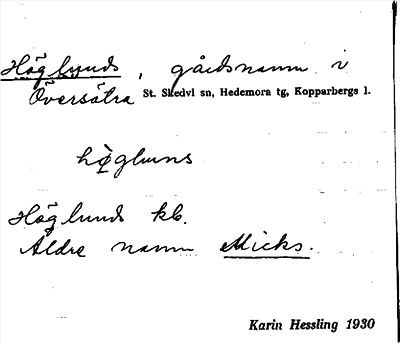 Höglunds, gårdsnamn i
Översätra St. Skedvi sn, Hedemora tg, Kopparbergs l.
högluns
Höglunds kb.
Äldre namn Micks.
Karin Hessling 1930